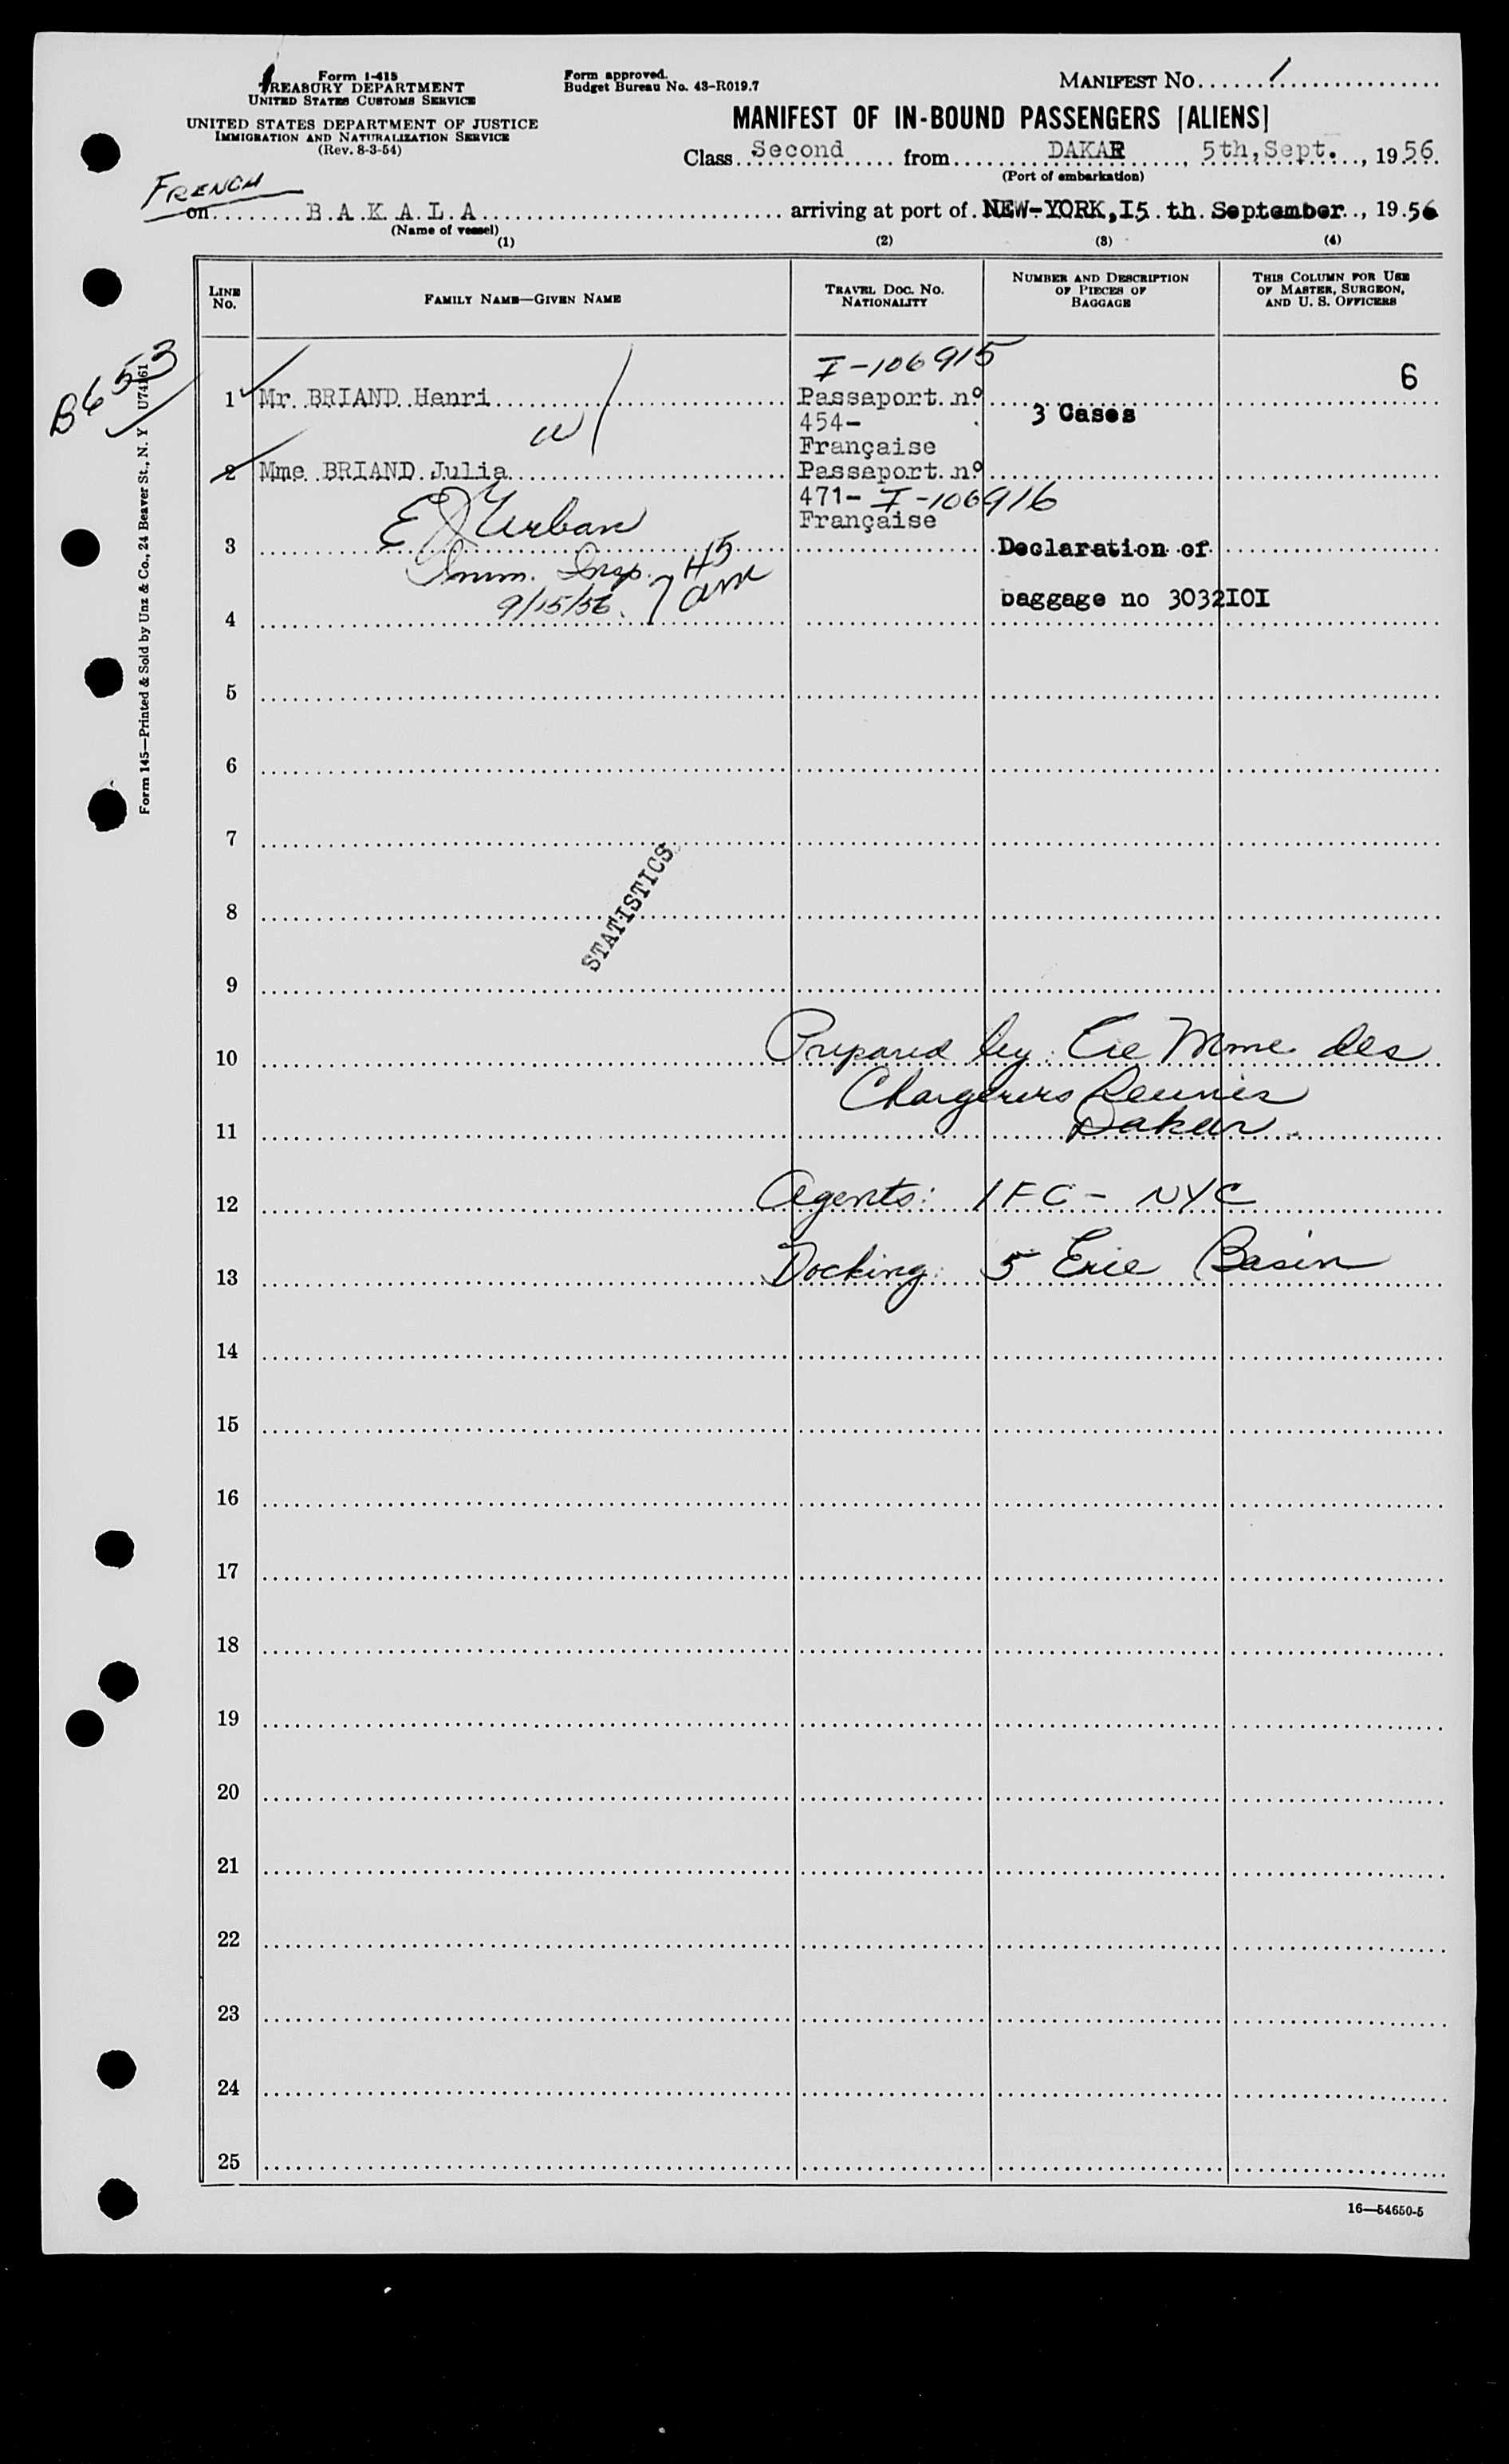 Form I-415
TREASURY DEPARTMENT
UNITED STATES CUSTOMS SERVICE
UNITED STATES DEPARTMENT OF JUSTICE
IMMIGRATION AND NATURALIZATION SERVICE
(Rev. 8-3-54)
Form approved.
Budget Bureau No. 43-R019.7
MANIFEST No. 1
MANIFEST OF IN-BOUND PASSENGERS [ALIENS]
Class Second from DAKAR, 5th, Sept., 1956
(Port of embarkation)
FRENCH
on B.A.K.A.L.A arriving at port of NEW-YORK, I5 th. September, 1956
(Name of vessel)
(1) (2) (3) (4)
LINE No.
FAMILY NAME—GIVEN NAME
TRAVEL DOC. NO. NATIONALITY
NUMBER AND DESCRIPTION OF PIECES OF BAGGAGE
THIS COLUMN FOR USE OF MASTER, SURGEON, AND U. S. OFFICERS
B6553
Form 145—Printed & Sold by Unz & Co., 24 Beaver St., N. Y U74161
I-106915
1 Mr. BRIAND Henri Passaport nº 6
454- 3 Cases
w/
Française
2 Mme BRIAND Julia Passaport nº
471- I-106916
Française
E J Urban
3 Declaration of
Imm. Insp. 7 45 am
9/15/56
baggage no 3032IOI
4
5
6
7
STATISTICS
8
9
10 Prepared by: Cie Mme des
Chargeurs Reunis
11 Dakar.
12 Agents: IFC - NYC
13 Docking: 5 Erie Basin
14
15
16
17
18
19
20
21
22
23
24
25
16—54650-5